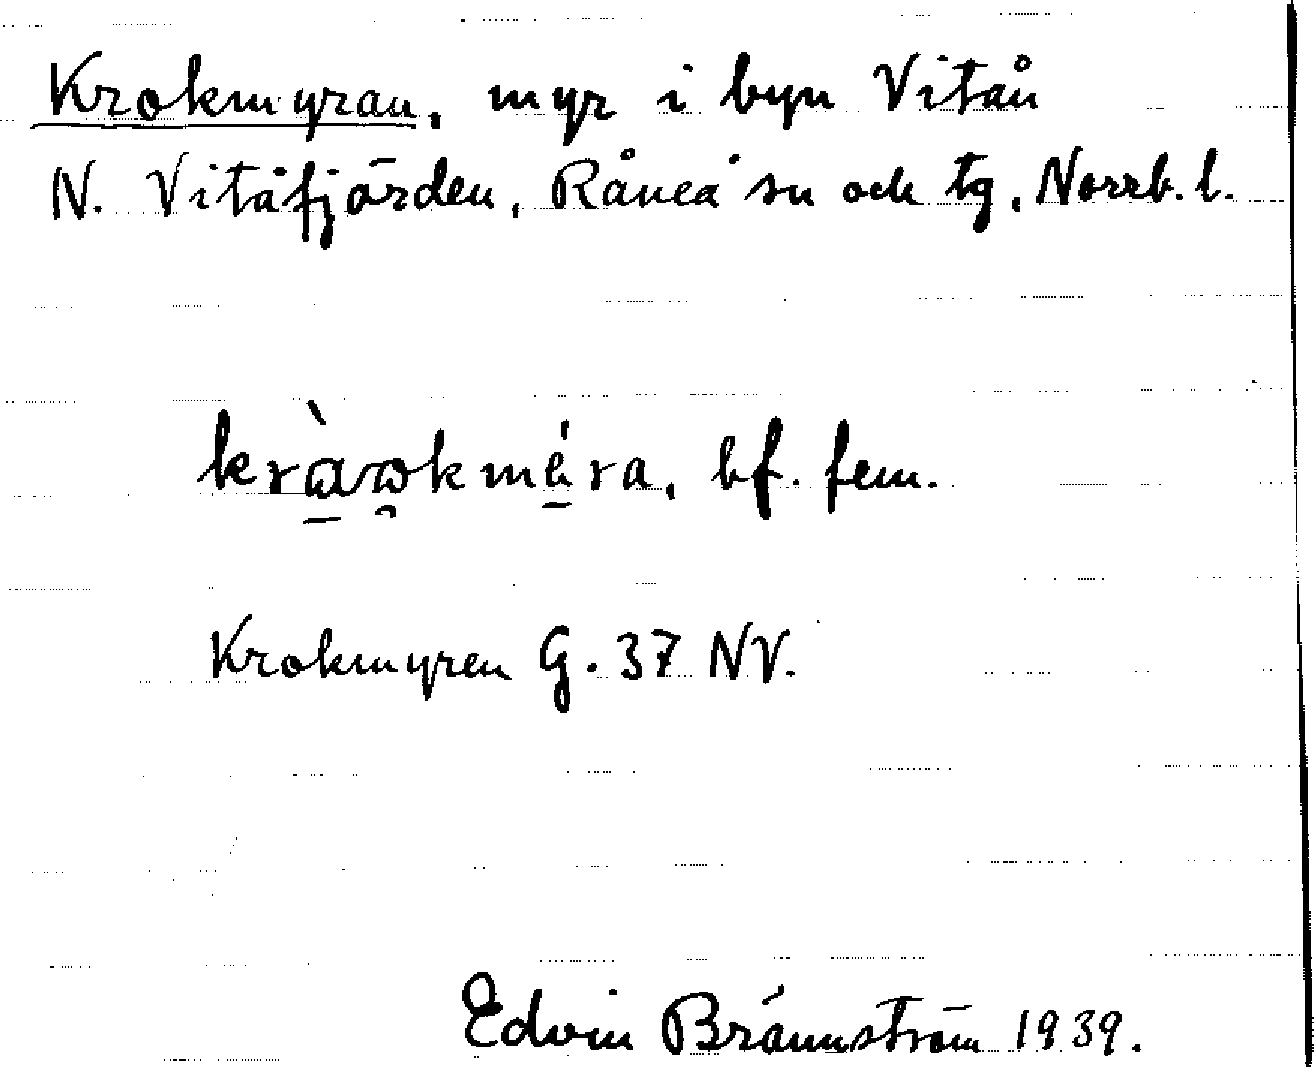 Krokmyran, myr i byn Vitån
N. Vitåfjärden, Råneå sn och tg, Norrb. l.
bf. fem.
Krokmyren G. 37 NV.
Edvin Brännström 1939.